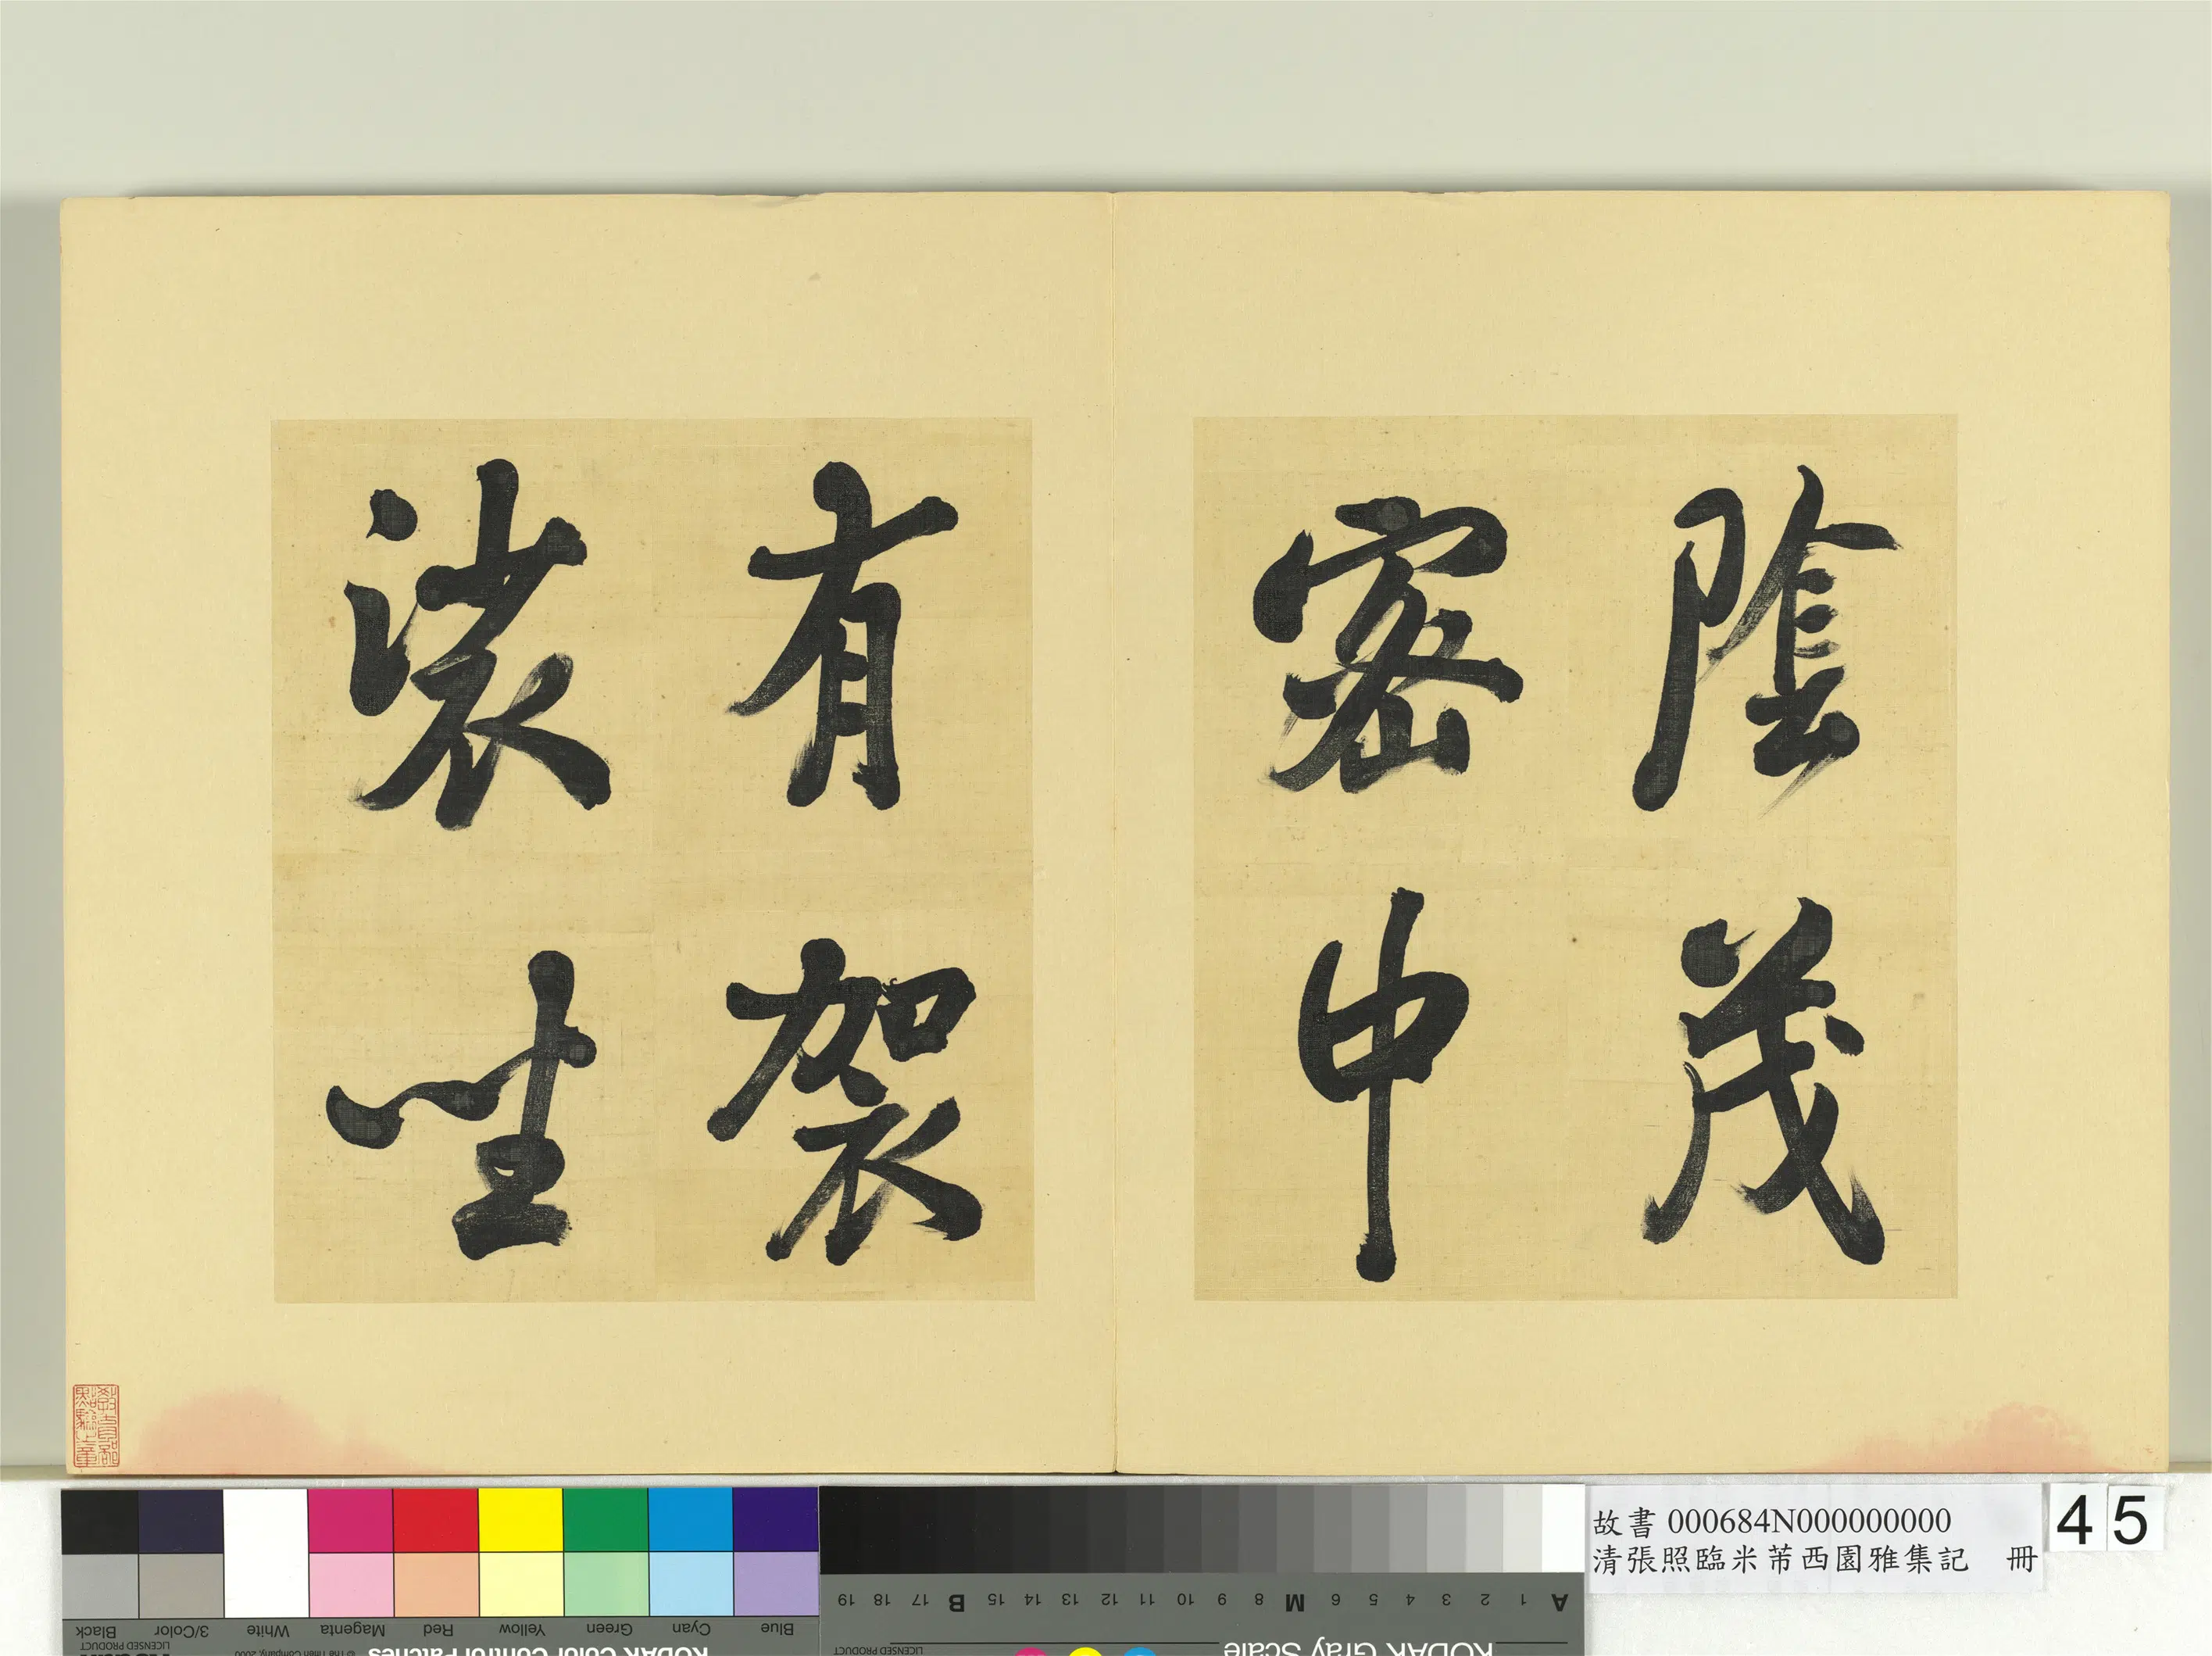 陰茂
密中
有袈
裟坐
故書 000684N000000000
清張照臨米芾西園雅集記 冊
45
Black 3/Color White Magenta Red Yellow Green Cyan Blue
KODAK Color Control Patches
LICENSED PRODUCT
© The Tiffen Company, 2000
A 1 2 3 4 5 6 M 8 9 10 11 12 13 14 15 B 17 18 19
KODAK Gray Scale
LICENSED PRODUCT